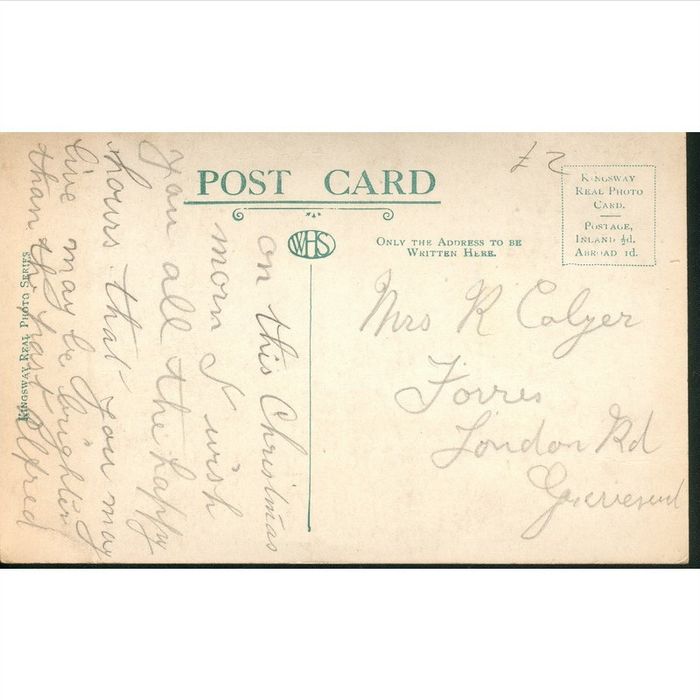 POST CARD
WHS
ONLY THE ADDRESS TO BE
WRITTEN HERE.
£2
KINGSWAY
REAL PHOTO
CARD.
POSTAGE,
INLAND ½d.
ABROAD 1d.
KINGSWAY REAL PHOTO SERIES
on this Christmas
morn I wish
you all the happy
hours that you may
live may be brighter
than the past Alfred
Mrs R Colyer
Forres
London Rd